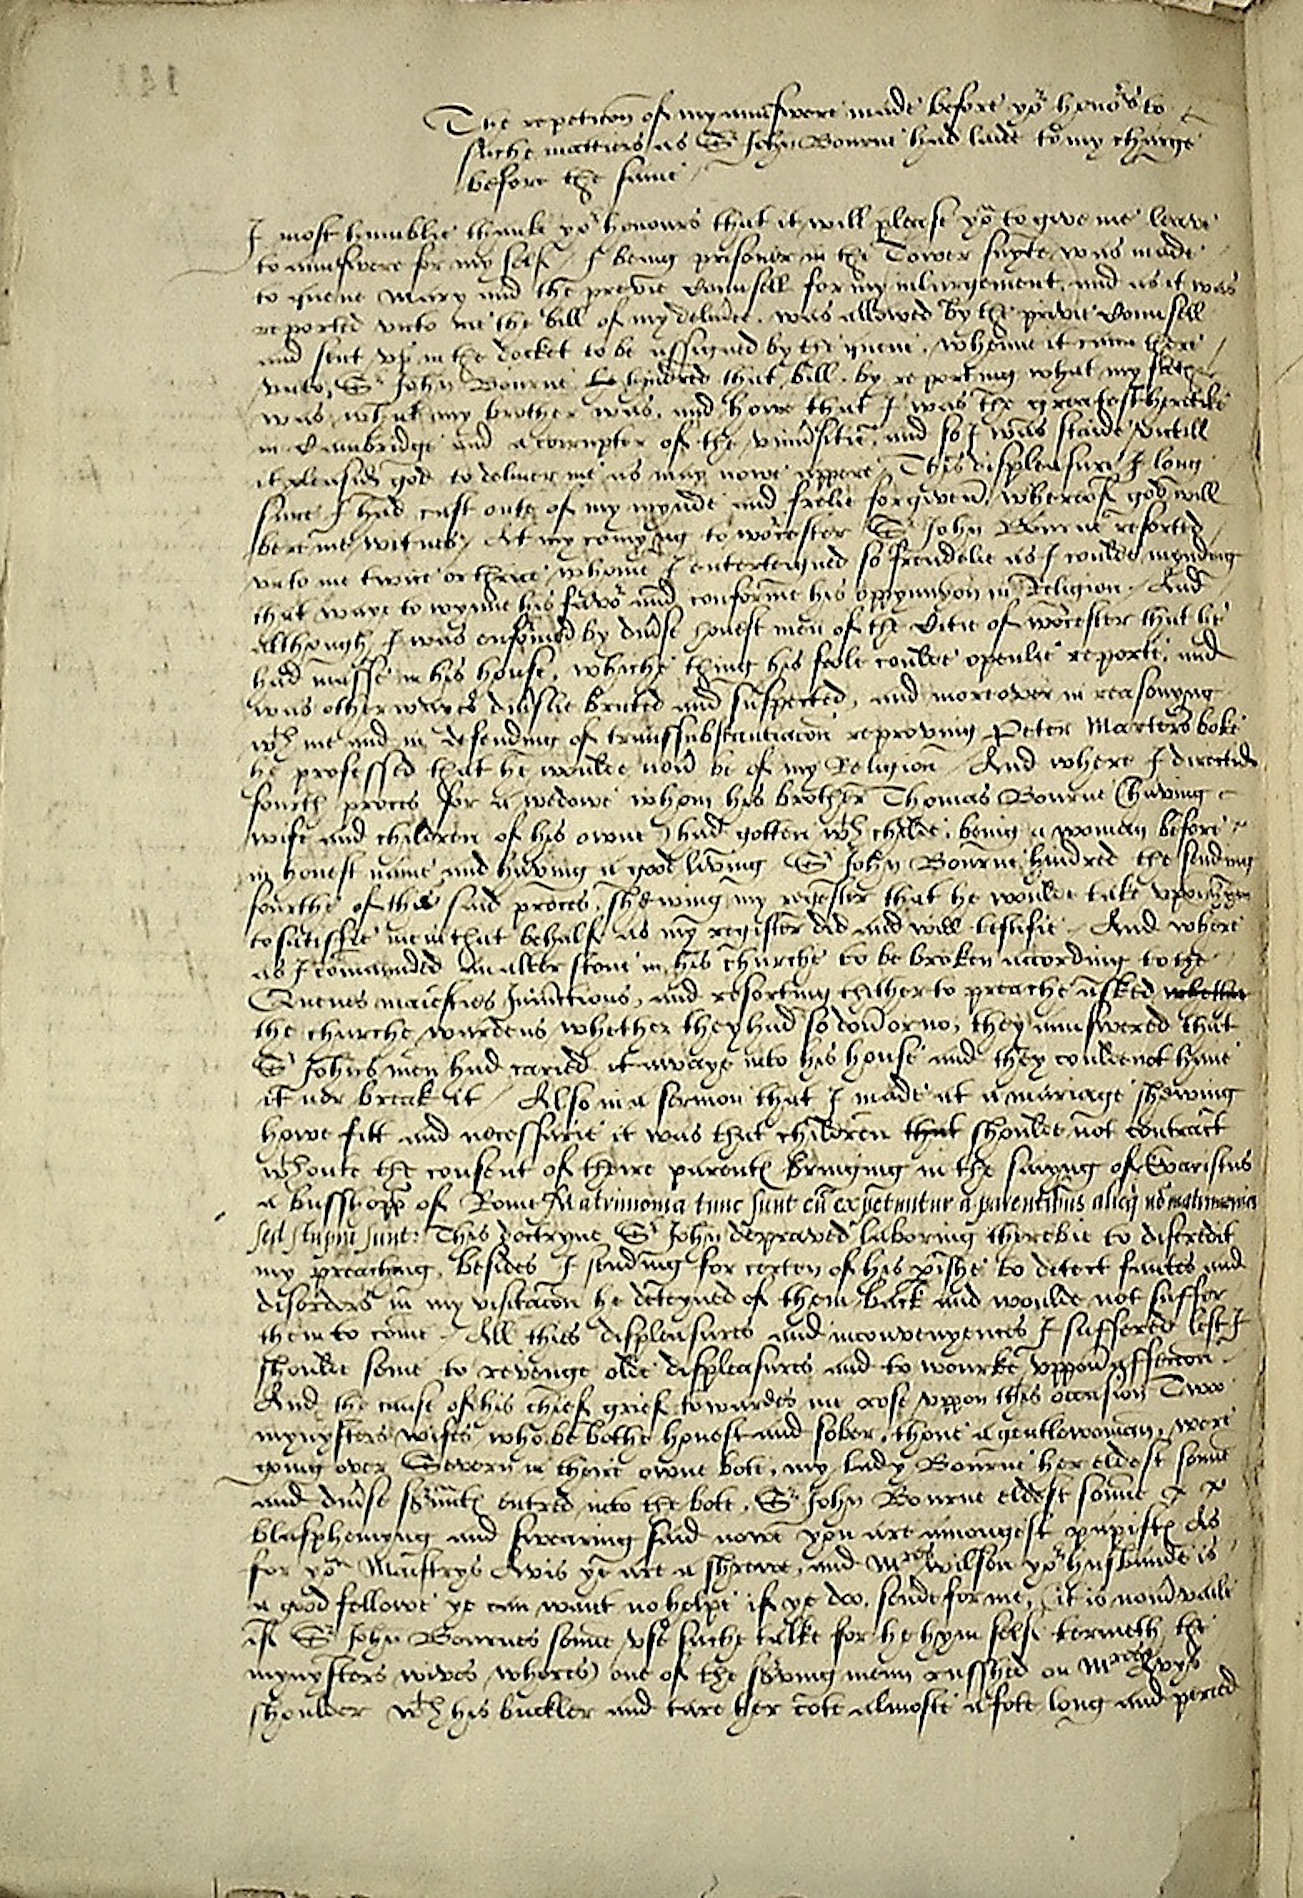 The repeticōn of my aunswere made before yor honors to
suche matters as Sr John Bourne had laide to my charge
before the same
I most humblie thanke yor honours that it will please yow to give me leave
to aunswere for my self. I being prisoner in the Tower suyte was made
to quene Mary and the prevye Counsell for my inlargement, and as it was
reported unto me the bill of my deliūce was allowed by the privie Counsell
and sent up in the docket to be assigned by the quene, whenne it came there
unto, Sr John Bourne hindred that bill by reporting what my
was, what my brother was, and howe that I was the greatest heretike
in Cambridge and a corrupter of the univ̄sitie, and so I was staide untill
it pleasid god to deliver me as may nowe appere. This displeasure I long
since I had cast oute of my mynde and frelie forgiven, whereof god will
bere me witnes. At my comyng to worcester Sr John Bourne resorted
unto me twice or thrice whome I enterteigned so frendelie as I coulde, mynding
that waye to wynne his favor and conforme his oppynyon in Religion. And
although I was enformed by div̄se honest men of the Citie of worcester that he
had masse in his house, whiche thing his foole coulde openlie reporte, and
was otherwayes div̄slie bruted and suspected, and moreover in reasonyng
wth me and in defending of transsubstantiacōn reproving Peter Marters boke
he professed that he woulde nev̄ be of my Religion. And where I directid
fourth proces for a wedowe whom his brother Thomas Bourne (having
wife and children of his owne) had gotten wth childe, being a woman before
in honest name and having a good living Sr John Bourne hindred the sending
fourthe of this said proces, shewing my register that he woulde take upon
to satisfie me in that behalf as my register did and will testifie. And where
as I com̄aunded an alter stone in his churche to be broken according to the
Quenes maiesties Iniūctions, and resorting thither to preache asked whether
the churche wardens whether they had so don̄ or no, they aunswered that
Sr Johns men had caried it awaye into his house and they coulde not have
it nor break it. Also in a sermon that I made at a mariage shewing
howe fitt and necessarie it was that children that shoulde not contract
wthoute the consent of theire parents bringing in the saiyng of Evaristus
a busshopp of Rome Matrimonia tunc sunt cū expetuntur a parentibus alioqui nō matrimonia
sed stupra sunt: This doctryne Sr John depraved laboring therebie to discredit
my preaching. Besides I sending for certen of his pīshe to detect fautes and
disorders in my visitacōn he deteyned of them back and woulde not suffer
them to come. All thies displeasures and inconvenyences I suffered lest I
shoulde seme to revenge olde displeasures and to wourke uppon affeccōn.
And the cause of his chief grief towardes me rose uppon this occasion Two
mynysters wifes who be bothe honest and sober, thone a gentlewoman, were
going over Severn in theire owne bote, my lady Bourne her eldest sonne
and div̄se s̄vaunts entred into the bote. Sr John Bourne eldest sonne
blasphemyng and swearing said nowe you are amongest papists As
for yow Maistrys Avis ye are a shrewe, and Mres wilson yor husbande is
a good fellowe ye can want no helpe if ye doo, sende for me, (it is no m̄vaile
if Sr John Bournes sonne use suche talke for he hym self termeth the
mynysters wives whores) one of the s̄ving menn russhed on Mres Avys
shoulder wth his buckler and tare her cote almoste a fote long and perced